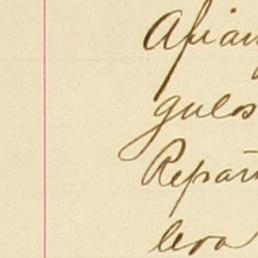 Afian
gulos
Repar
leva